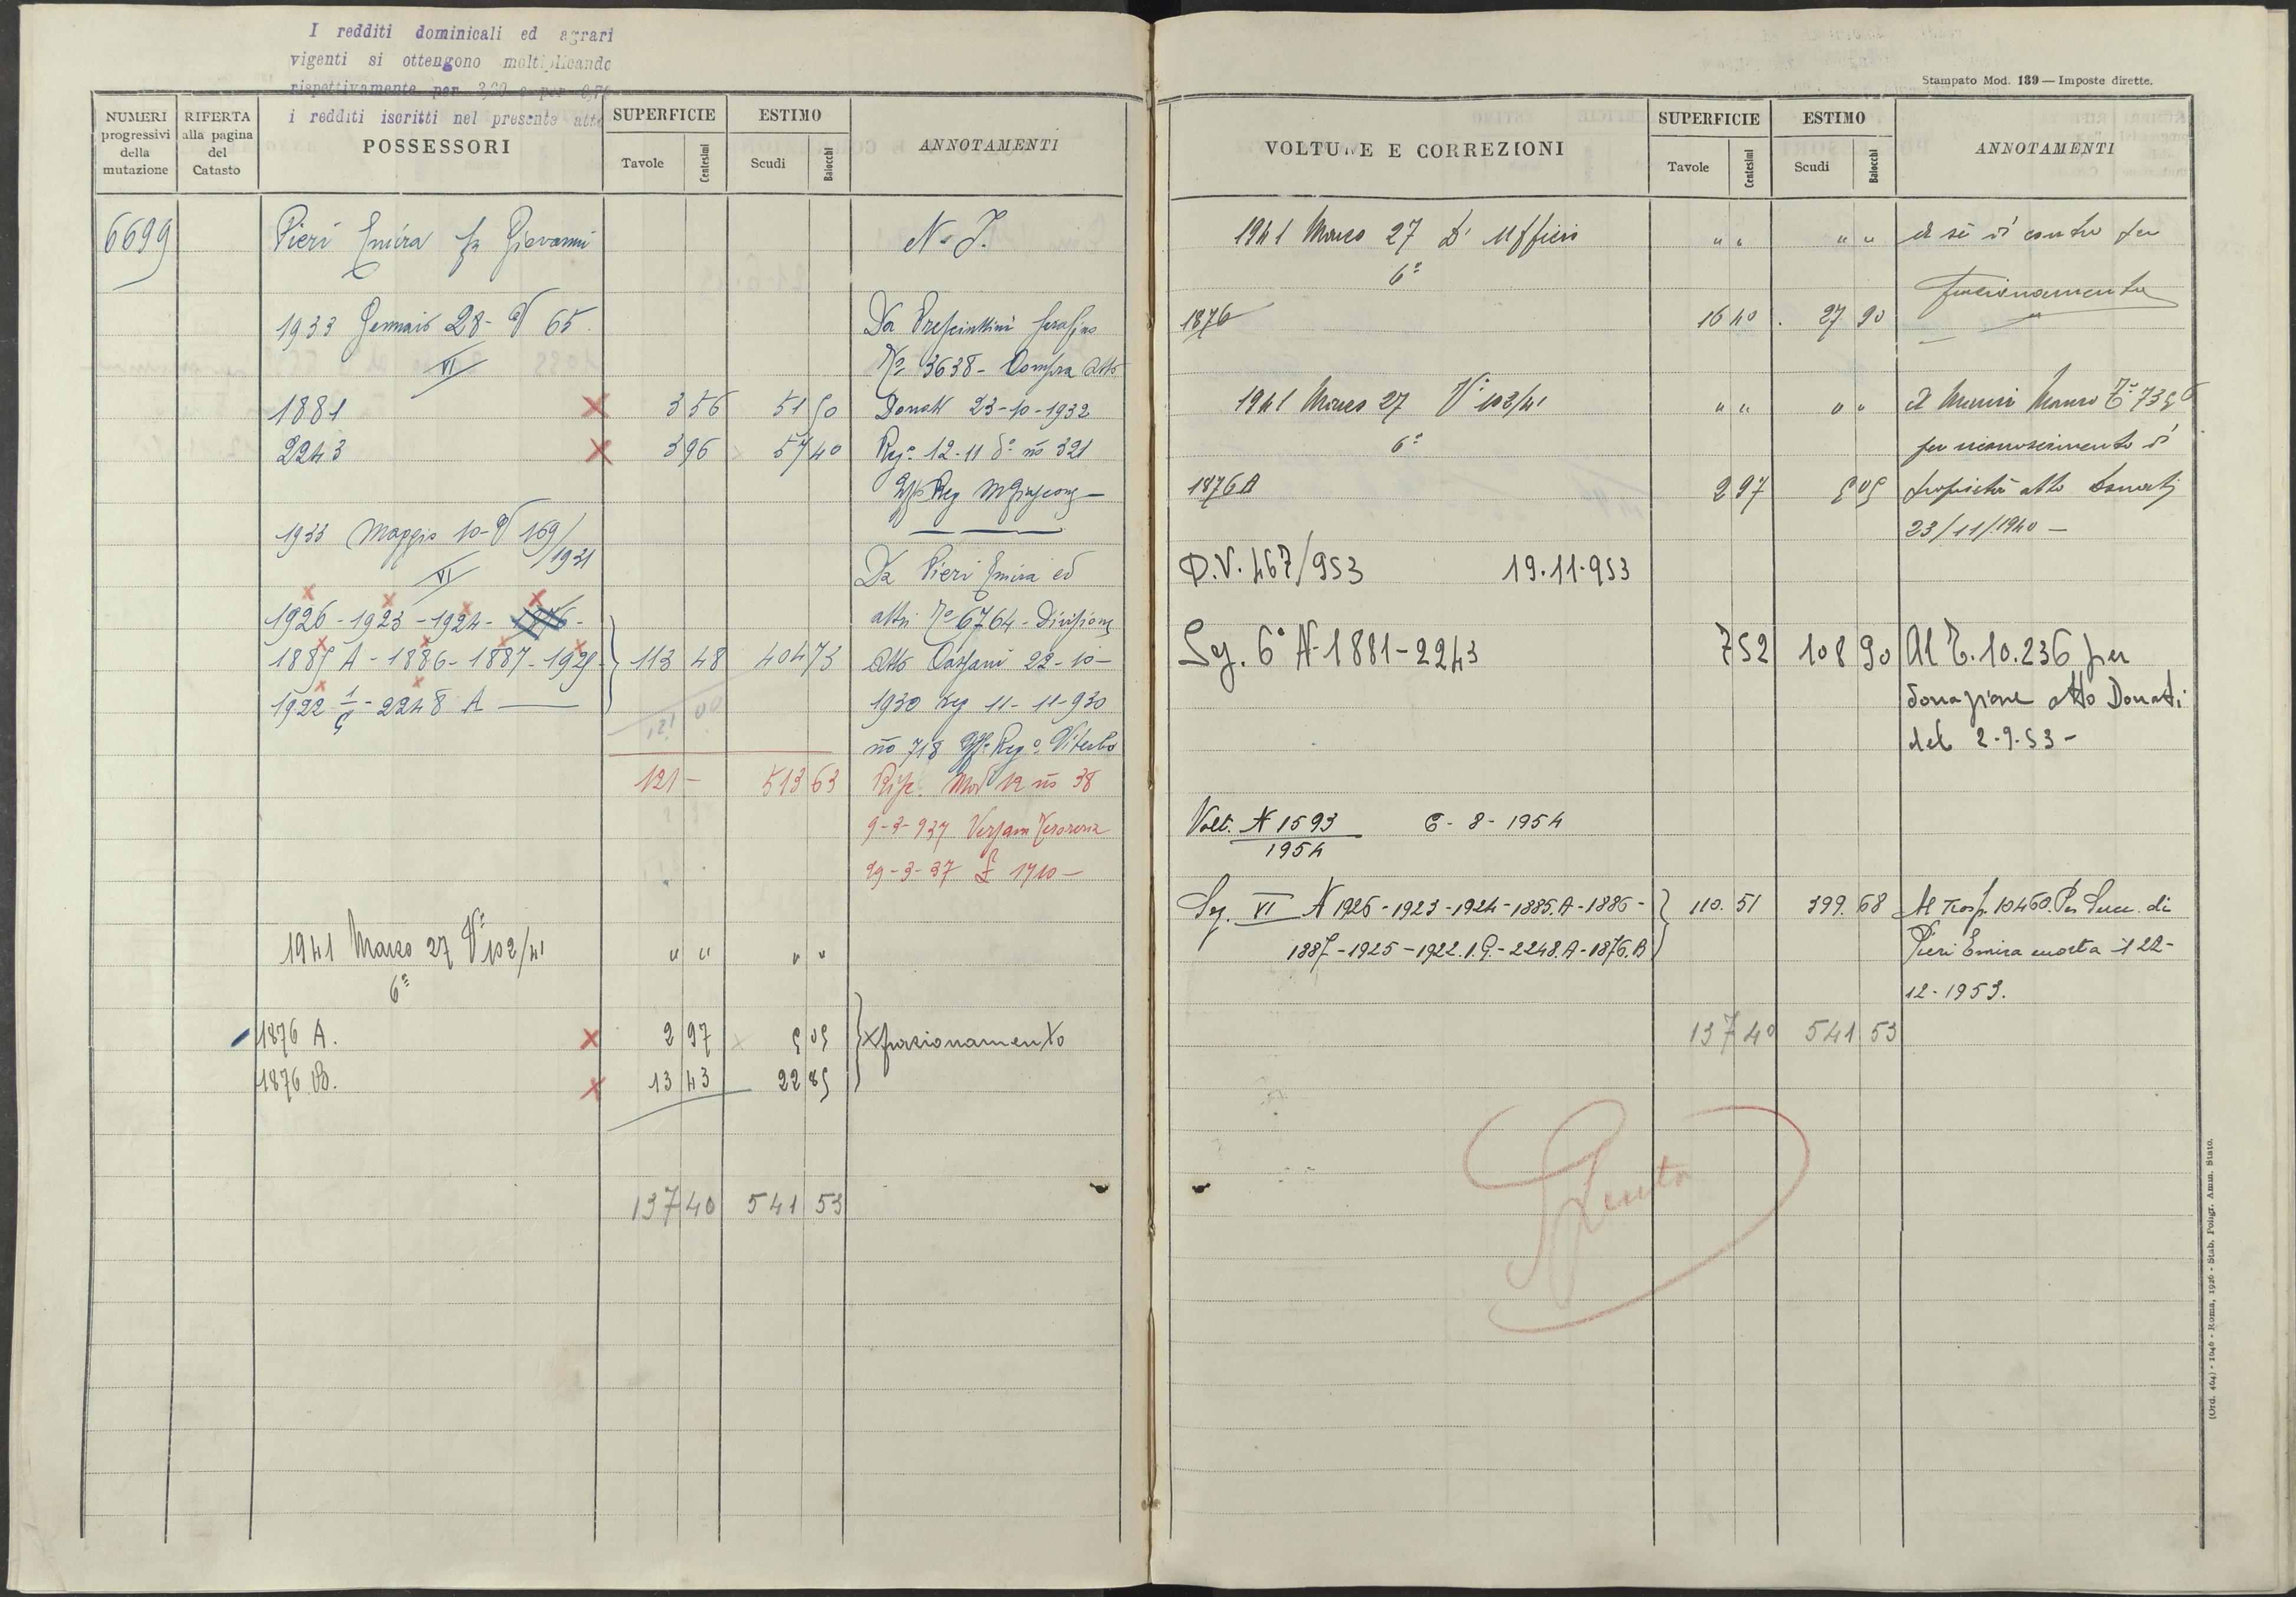 I redditi dominicali ed agrari
vigenti si ottengono moltiplicando
rispettivamente per 3,20 e per 0,70
i redditi iscritti nel presente atto
NUMERI progressivi della mutazione
RIFERTA alla pagina del Catasto
POSSESSORI
SUPERFICIE
Tavole Centesimi
ESTIMO
Scudi Baiocchi
ANNOTAMENTI
6699 Pieri Emira fu Giovanni N. I.
1933 Gennaio 28 - V 65 Da Presciuttini Serafino
VI No 3638 - Compra atto
1881 x 3 56 51 50 Donati 23-10-1932
2243 x 3 96 57 40 Rego 12-11 do no 321
Uffo Reg
1933 Maggio 10 - V 169/1931
VI Da Pieri Emira ed
1926 - 1923 - 1924 - 1876 - altri No 6764 - Divisione
1885 A - 1886 - 1887 - 1925 - 113 48 404 73 Atto Cassani 22-10-
1922 1/9 - 2248 A 121 00 1930 reg 11-11-930
no 718 Uffo Rego Viterbo
121 - 513 63 Mod 12 no 38
9-3-937 Tesoreria
29-3-37 £ 1710 -
1941 Marzo 27 V 102/41 " " " "
6a
1876 A. x 2 97 5 05 x frazionamento
1876 B. x 13 43 22 85
137 40 541 53
Stampato Mod. 139 — Imposte dirette.
VOLTURE E CORREZIONI
SUPERFICIE
Tavole Centesimi
ESTIMO
Scudi Baiocchi
ANNOTAMENTI
1941 Marzo 27 D' Ufficio " " " " A sè di contro per
6a frazionamento
1876 16 40 27 90
1941 Marzo 27 V 102/41 " " " " A Mauro
6a per riconoscimento di
1876 A 2 97 5 05 proprietà atto Donati
23/11/1940 -
D.V. 467/953 19.11.953
Sez. 6a N 1881-2243 7 52 108 90 Al T. 10.236 per
donazione atto Donati
del 2-9-53 -
Volt. N 1593/1954 6 - 8 - 1954
Sez. VI N 1926-1923-1924-1885.A-1886- 110. 51 399. 68 Al Trasp. 10460. Per Succ. di
1887-1925-1922.1.9.-2248.A-1876.B Pieri Emira morta il 22-
12-1953.
137 40 541 53
Spenta
(Ord. 464) - 1046 - Roma, 1926 - Stab. Poligr. Amm. Stato.